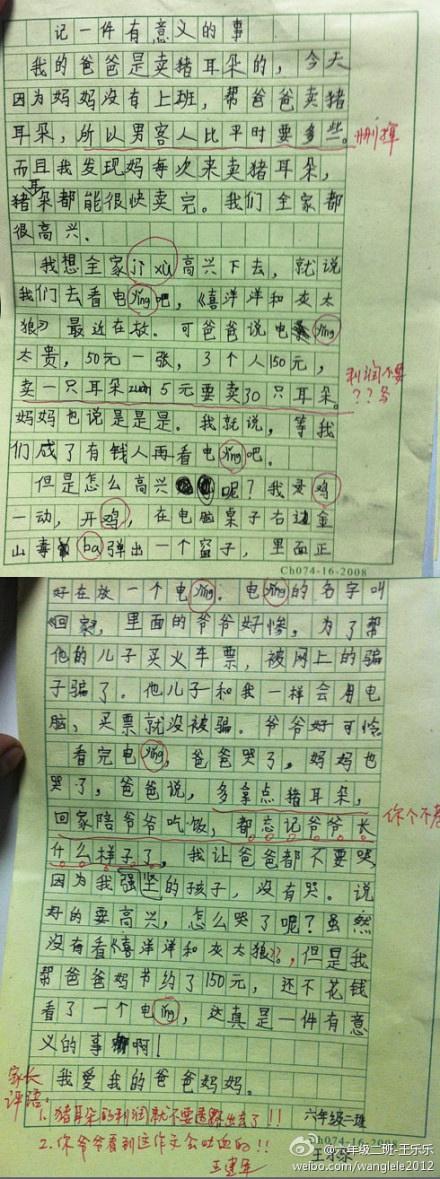 记一件有意义的事
我的爸爸是卖猪耳朵的，今天
因为妈妈没有上班，帮爸爸卖猪
耳朵，所以男客人比平时要多些。
而且我发现妈每次来卖猪耳朵，
猪耳朵都能很快卖完。我们全家都
很高兴.
我想全家jì xù高兴下去，就说
我们去看电yǐng吧，《喜洋洋和灰太
狼》最近在放．可爸爸说电yǐng
太贵，50元一张，3个人150元，
卖一只耳朵zuàn5元要卖30只耳朵。
利润不要
？？多
妈妈也说是是是．我就说，等我
们成了有钱人再看电yǐng吧．
但是怎么高兴呢？我灵鸡
一动，开鸡，在电脑桌子右边金
山毒ba弹出一个窗子，里面正
Ch074-16-2008
好在放一个电yǐng．电yǐng的名字叫
《回家》，里面的爷爷好惨。为了帮
他的儿子买火车票，被网上的骗
子骗了。他儿子和我一样会用电
脑，买票就没被骗．爷爷好可怜
看完电yǐng，爸爸哭了，妈妈也
哭了，爸爸说，多拿点猪耳朵，
回家陪爷爷吃饭，都忘记爷爷长
你个不孝
什么样子了，我让爸爸都不要哭
因为我强坚的孩子，没有哭．说
好的要高兴，怎么哭了呢？虽然
没有看《喜洋洋和灰太狼》，但是我
帮爸爸妈节约了150元，还不花钱
看了一个电yǐng，这真是一件有意
义的事啊！
我爱我的爸爸妈妈。
家长
评语：
1.猪耳朵的利润就不要透露出去了！！
六年级二班
2.你爷爷看到这作文会吐血的！！
王建军
Ch074-16-2008
王乐乐
@六年级二班-王乐乐
weibo.com/wanglele2012